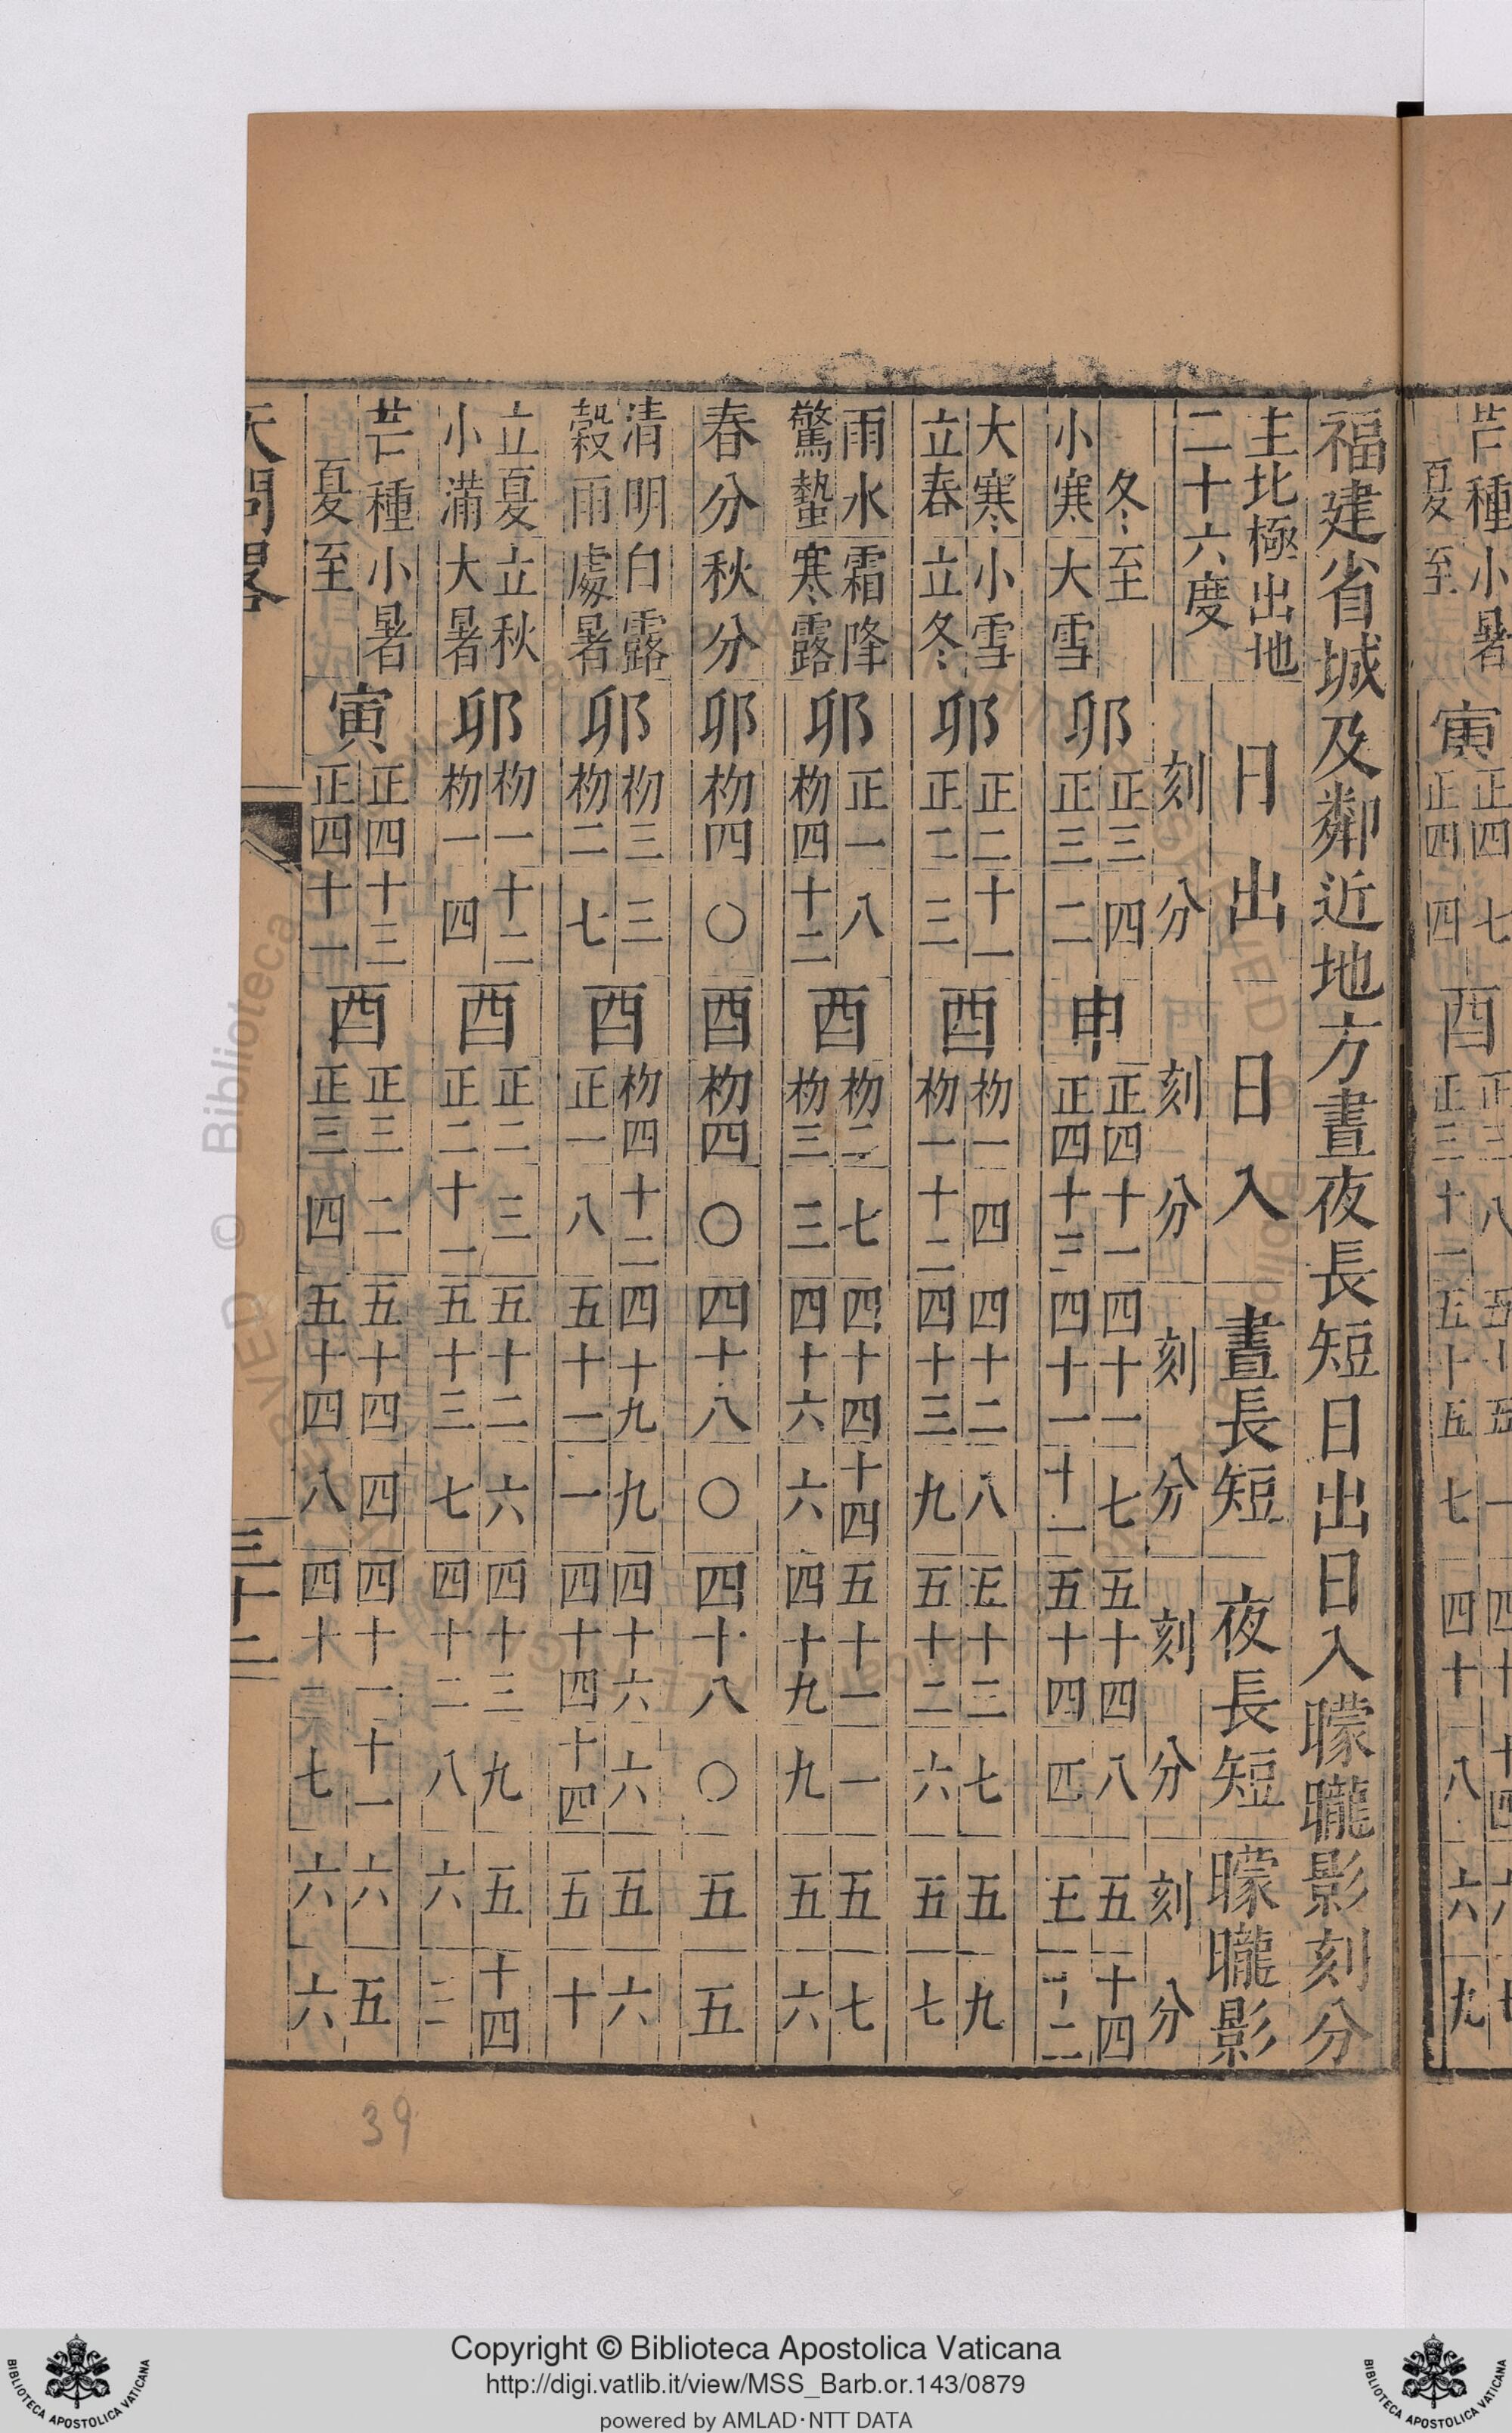 芒種小暑寅正四七酉正三八
夏至正四四正三十二五十五七四十八六九
福建省城及鄰近地方晝夜長短日出日入曚曨影刻分
主北極出地
二十六度
日出日入晝長短夜長短曚曨影
刻分刻分刻分刻分刻分
冬至卯正三四申正四十一四十一七五十四八五十四
小寒大雪正三二正四十三四十一十一五十四四五十二
大寒小雪卯正二十一酉初一四四十二八五十三七五九
立春立冬正二三初一十二四十三九五十二六五七
雨水霜降卯正一八酉初二七四十四十四五十一一五七
驚蟄寒露初四十二初三三四十六六四十九九五六
春分秋分卯初四〇酉初四〇四十八〇四十八〇五五
清明白露卯初三三酉初四十二四十九九四十六六五六
穀雨處暑初二七正一八五十一一四十四十四五十
立夏立秋卯初一十二酉正二三五十二六四十三九五十四
小滿大暑初一四正二十一五十三七四十二八六三
芒種小暑寅正四十三酉正三二五十四四四十一十一六五
夏至正四十一正三四五十四八四十一七六六
天問畧
三十二
39
© Biblioteca
Copyright © Biblioteca Apostolica Vaticana
http://digi.vatlib.it/view/MSS_Barb.or.143/0879
powered by AMLAD·NTT DATA
BIBLIOTECA APOSTOLICA VATICANA
BIBLIOTECA APOSTOLICA VATICANA